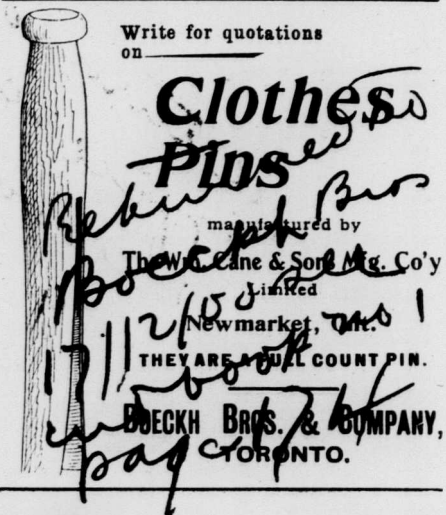 Write for quotations
on
Clothes
Pins
manufactured by
The Wm. Cane & Sons Mfg. Co'y
Limited
Newmarket, Ont.
THEY ARE A FULL COUNT PIN.
BOECKH BROS. & COMPANY,
TORONTO.
to
Boeckh Bros
no 1
book
page 174